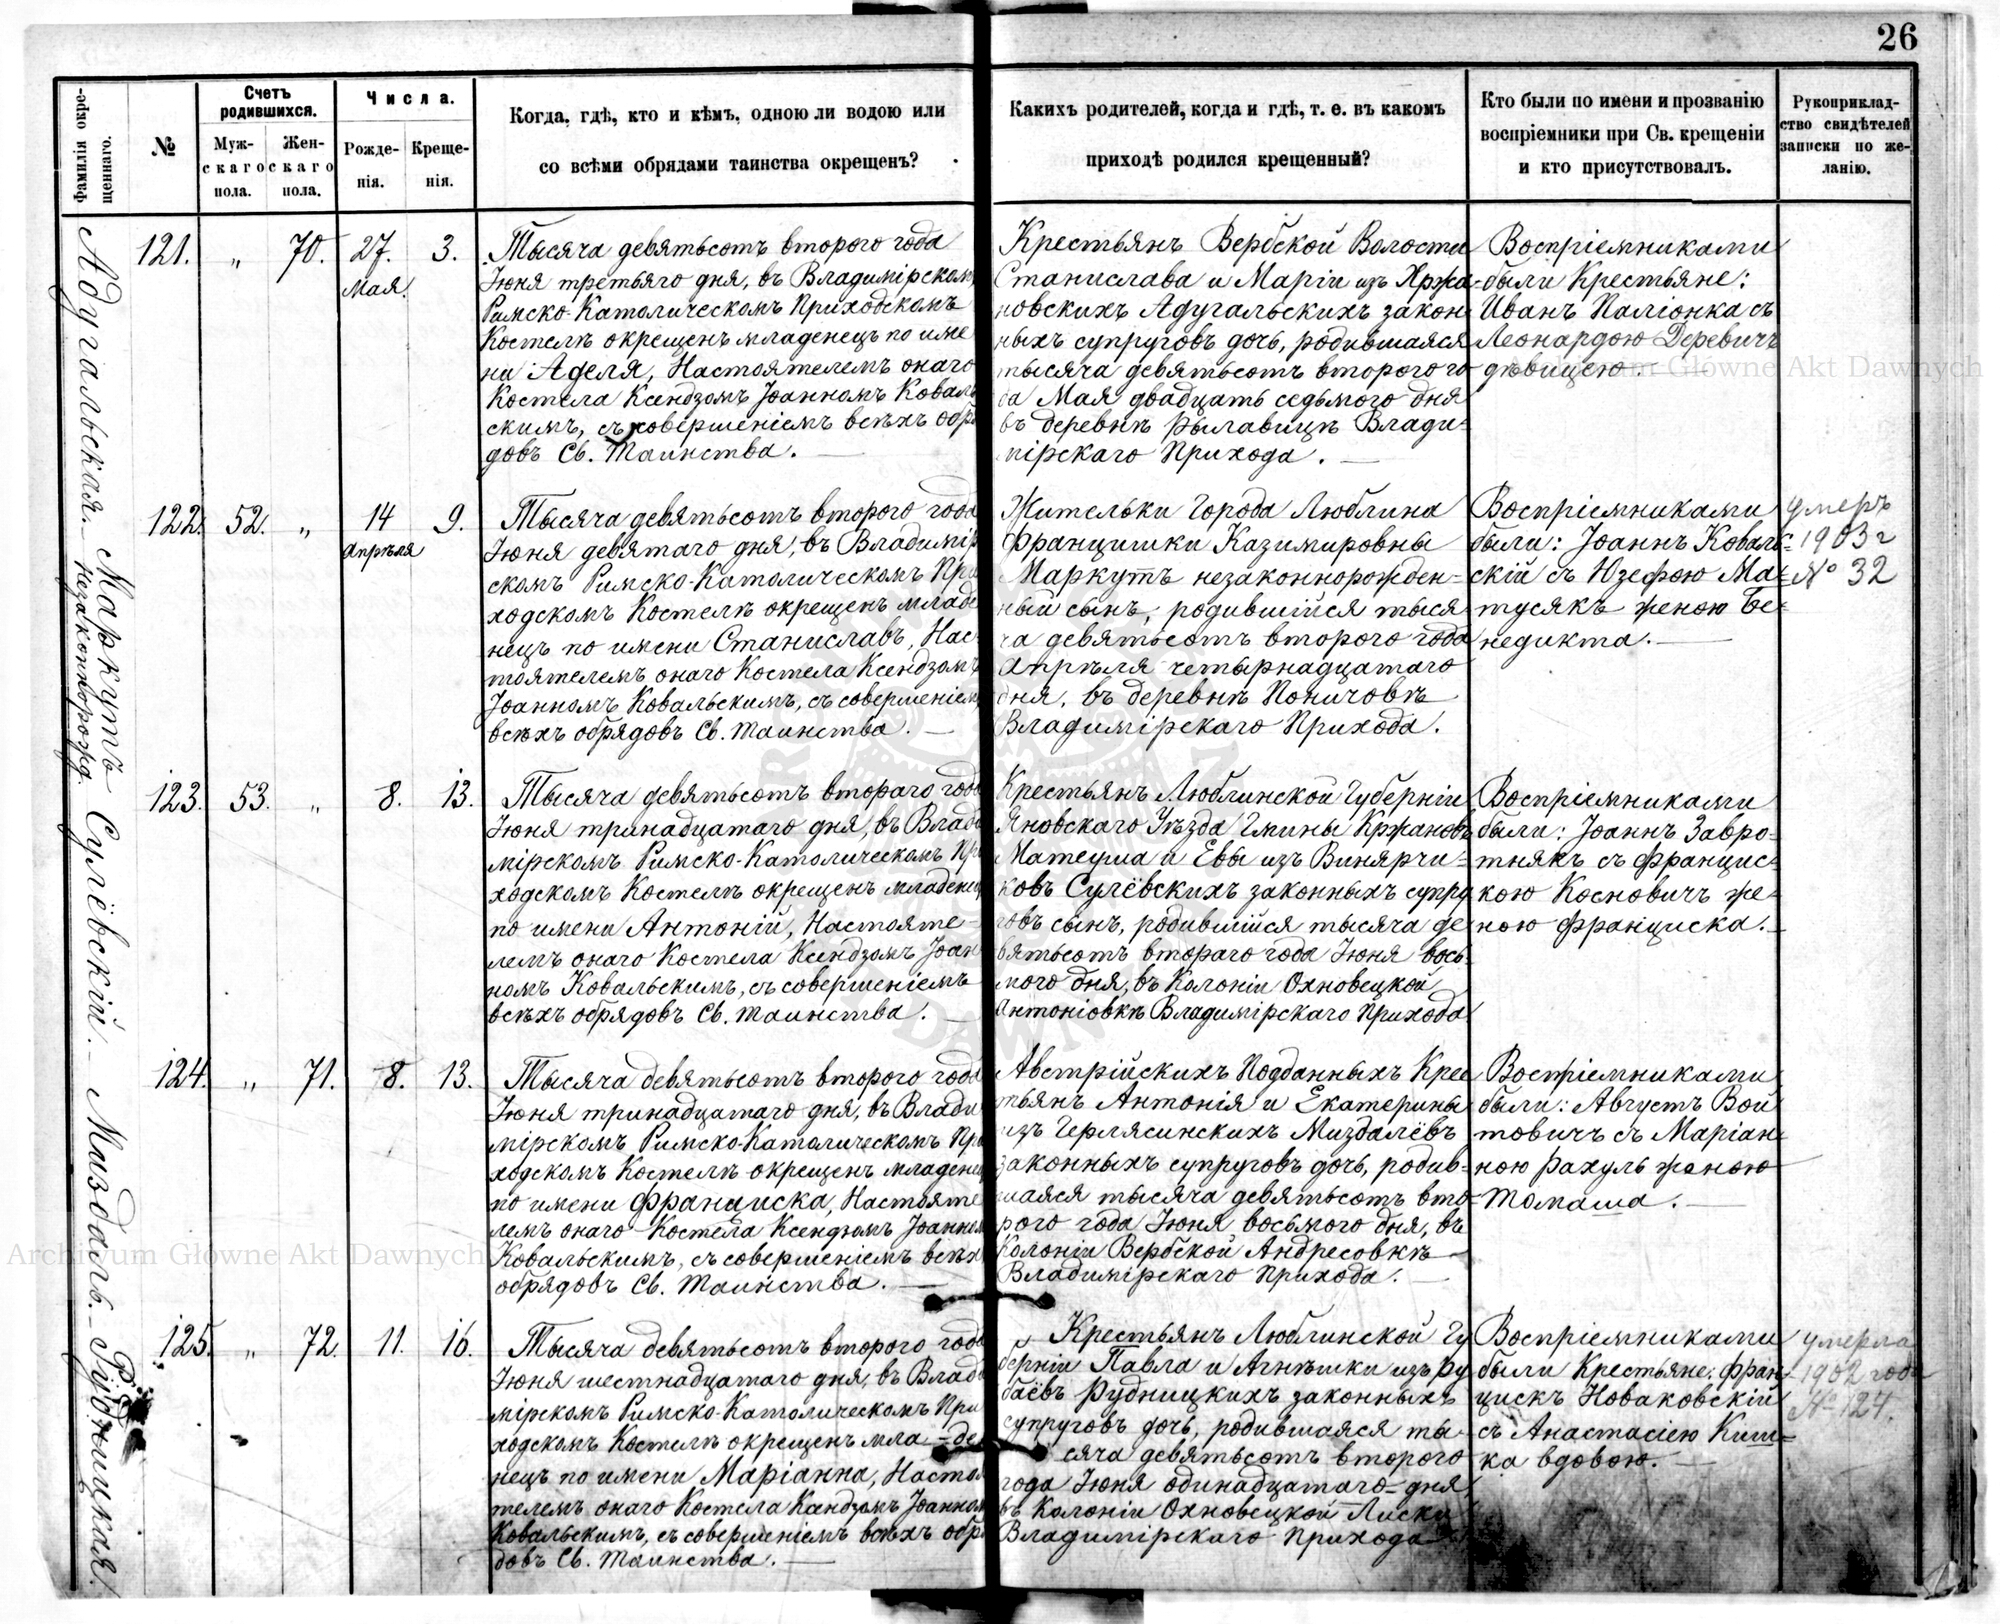 26
Фамилія окрещеннаго.
№
Счетъ родившихся.
Мужскаго пола.
Женскаго пола.
Числа.
Рожденія.
Крещенія.
Когда, гдѣ, кто и кѣмъ, одною ли водою или
со всѣми обрядами таинства окрещенъ?
Какихъ родителей, когда и гдѣ, т. е. въ какомъ
приходѣ родился крещенный?
Кто были по имени и прозванію
воспріемники при Св. крещеніи
и кто присутствовалъ.
Рукоприклад-
ство свидѣтелей
записки по же-
ланію.
Адугальская.
121. „ 70. 27. Мая. 3.
Тысяча девятьсотъ второго года
Іюня третьяго дня, въ Владимірском
Римско-Католическомъ Приходскомъ
Костелѣ окрещенъ младенецъ по име
ни Аделя, Настоятелемъ онаго
Костела Ксендзомъ Іоанномъ Коваль
скимъ, съ совершеніемъ всѣхъ обря
довъ Св. Таинства.
Крестьянъ Вербской Волости
Станислава и Маріи изъ Хржа-
новскихъ Адугальскихъ закон-
ныхъ супруговъ дочь, родившаяся
тысяча девятьсотъ второго го
да Мая двадцать седьмого дня
въ деревнѣ Рылавицѣ Влади-
мірскаго Прихода.
Воспріемниками
были Крестьяне:
Иванъ Паліонка съ
Леонардою Деревичъ
дѣвицею.
Маркутъ незаконнорожд.
122. 52. „ 14 Апрѣля 9.
Тысяча девятьсотъ второго года
Іюня девятаго дня, въ Владимір
скомъ Римско-Католическомъ При
ходскомъ Костелѣ окрещенъ младе
нецъ по имени Станиславъ, Нас-
тоятелемъ онаго Костела Ксендзомъ
Іоанномъ Ковальскимъ, съ совершеніем
всѣхъ обрядовъ Св. Таинства.
Жительки Города Люблина
Францишки Казимировны
Маркутъ незаконнорожден-
ный сынъ, родившійся тыся
ча девятьсотъ второго года
Апрѣля четырнадцатаго
дня, въ деревнѣ Поничовѣ
Владимірскаго Прихода.
Воспріемниками
были: Іоаннъ Коваль-
скій съ Юзефою Ма-
тусякъ женою Бе-
недикта.
умеръ
1903 г
№ 32
Сулёвскій.
123. 53. „ 8. 13.
Тысяча девятьсотъ втораго года
Іюня тринадцатаго дня, въ Влади
мірскомъ Римско-Католическомъ При
ходскомъ Костелѣ окрещенъ младенец
по имени Антоній, Настояте-
лемъ онаго Костела Ксендзомъ Іоан-
номъ Ковальскимъ, съ совершеніемъ
всѣхъ обрядовъ Св. Таинства.
Крестьянъ Люблинской Губерніи
Яновскаго Уѣзда Гмины Кржановъ
Матеуша и Евы изъ Винярчи-
ковъ Сулёвскихъ законныхъ супру
говъ сынъ, родившійся тысяча де
вятьсотъ втораго года Іюня вось-
мого дня, въ Колоніи Охновецкой
Антоніовкѣ Владимірскаго Прихода.
Воспріемниками
были: Іоаннъ Завро-
тнякъ съ Францис-
кою Косновичъ же-
ною Франциска.
Миздаль.
124. „ 71. 8. 13.
Тысяча девятьсотъ второго года
Іюня тринадцатаго дня, въ Влади
мірскомъ Римско-Католическомъ При
ходскомъ Костелѣ окрещенъ младенец
по имени Франциска, Настояте
лемъ онаго Костела Ксендзомъ Іоанном
Ковальскимъ, съ совершеніемъ всѣхъ
обрядовъ Св. Таинства.
Австрійскихъ Подданныхъ Крес
тьянъ Антонія и Екатерины
изъ Герлясинскихъ Миздалёвъ
законныхъ супруговъ дочь, родив-
шаяся тысяча девятьсотъ вто-
рого года Іюня восьмого дня, въ
Колоніи Вербской Андресовкѣ
Владимірскаго Прихода.
Воспріемниками
были: Августъ Вой
товичъ съ Маріан-
ною Рахуль женою
Томаша.
Рудницкая.
125. „ 72. 11. 16.
Тысяча девятьсотъ второго года
Іюня шестнадцатаго дня, въ Влади
мірскомъ Римско-Католическомъ При
ходскомъ Костелѣ окрещенъ мла-де
нецъ по имени Маріанна, Настоя
телемъ онаго Костела Ксендзомъ Іоанном
Ковальскимъ, съ совершеніемъ всѣхъ обря
довъ Св. Таинства.
Крестьянъ Люблинской Гу
берніи Павла и Агнѣшки изъ Ру
баёвъ Рудницкихъ законныхъ
супруговъ дочь, родившаяся ты-
сяча девятьсотъ второго
года Іюня одинадцатаго дня,
въ Колоніи Охновецкой Лиски
Владимірскаго Прихода
Воспріемниками
были Крестьяне: Фран-
цискъ Новаковскій
съ Анастасіею Киш-
ка вдовою.
умерла
1902 года
№ 124.
Archiwum Główne Akt Dawnych
Archiwum Główne Akt Dawnych